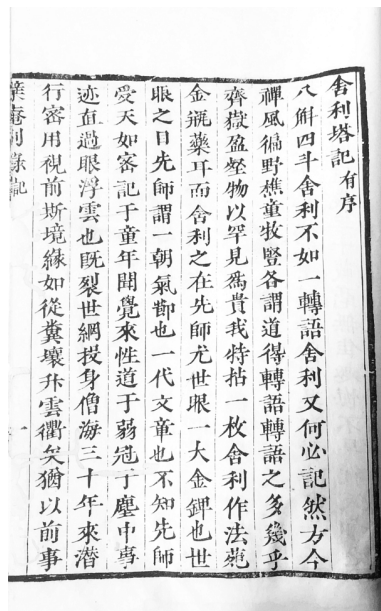 舍利塔記 有序
八斛四斗舍利不如一轉語舍利又何必記然方今
禪風徧野樵童牧豎各謂道得轉語轉語之多幾乎
齊嶽盈壑物以罕見爲貴我特拈一枚舍利作法苑
金瓶藥耳而舍利之在先師尤世眼一大金錍也世
眼之日先師謂一朝氣節也一代文章也不知先師
受天如密記于童年聞覺來性道于弱冠于塵中事
迹直過眼浮雲也既裂世網投身僧海三十年來潜
行密用視前斯境緣如從糞壤升雲衢矣猶以前事
庵別錄記 一